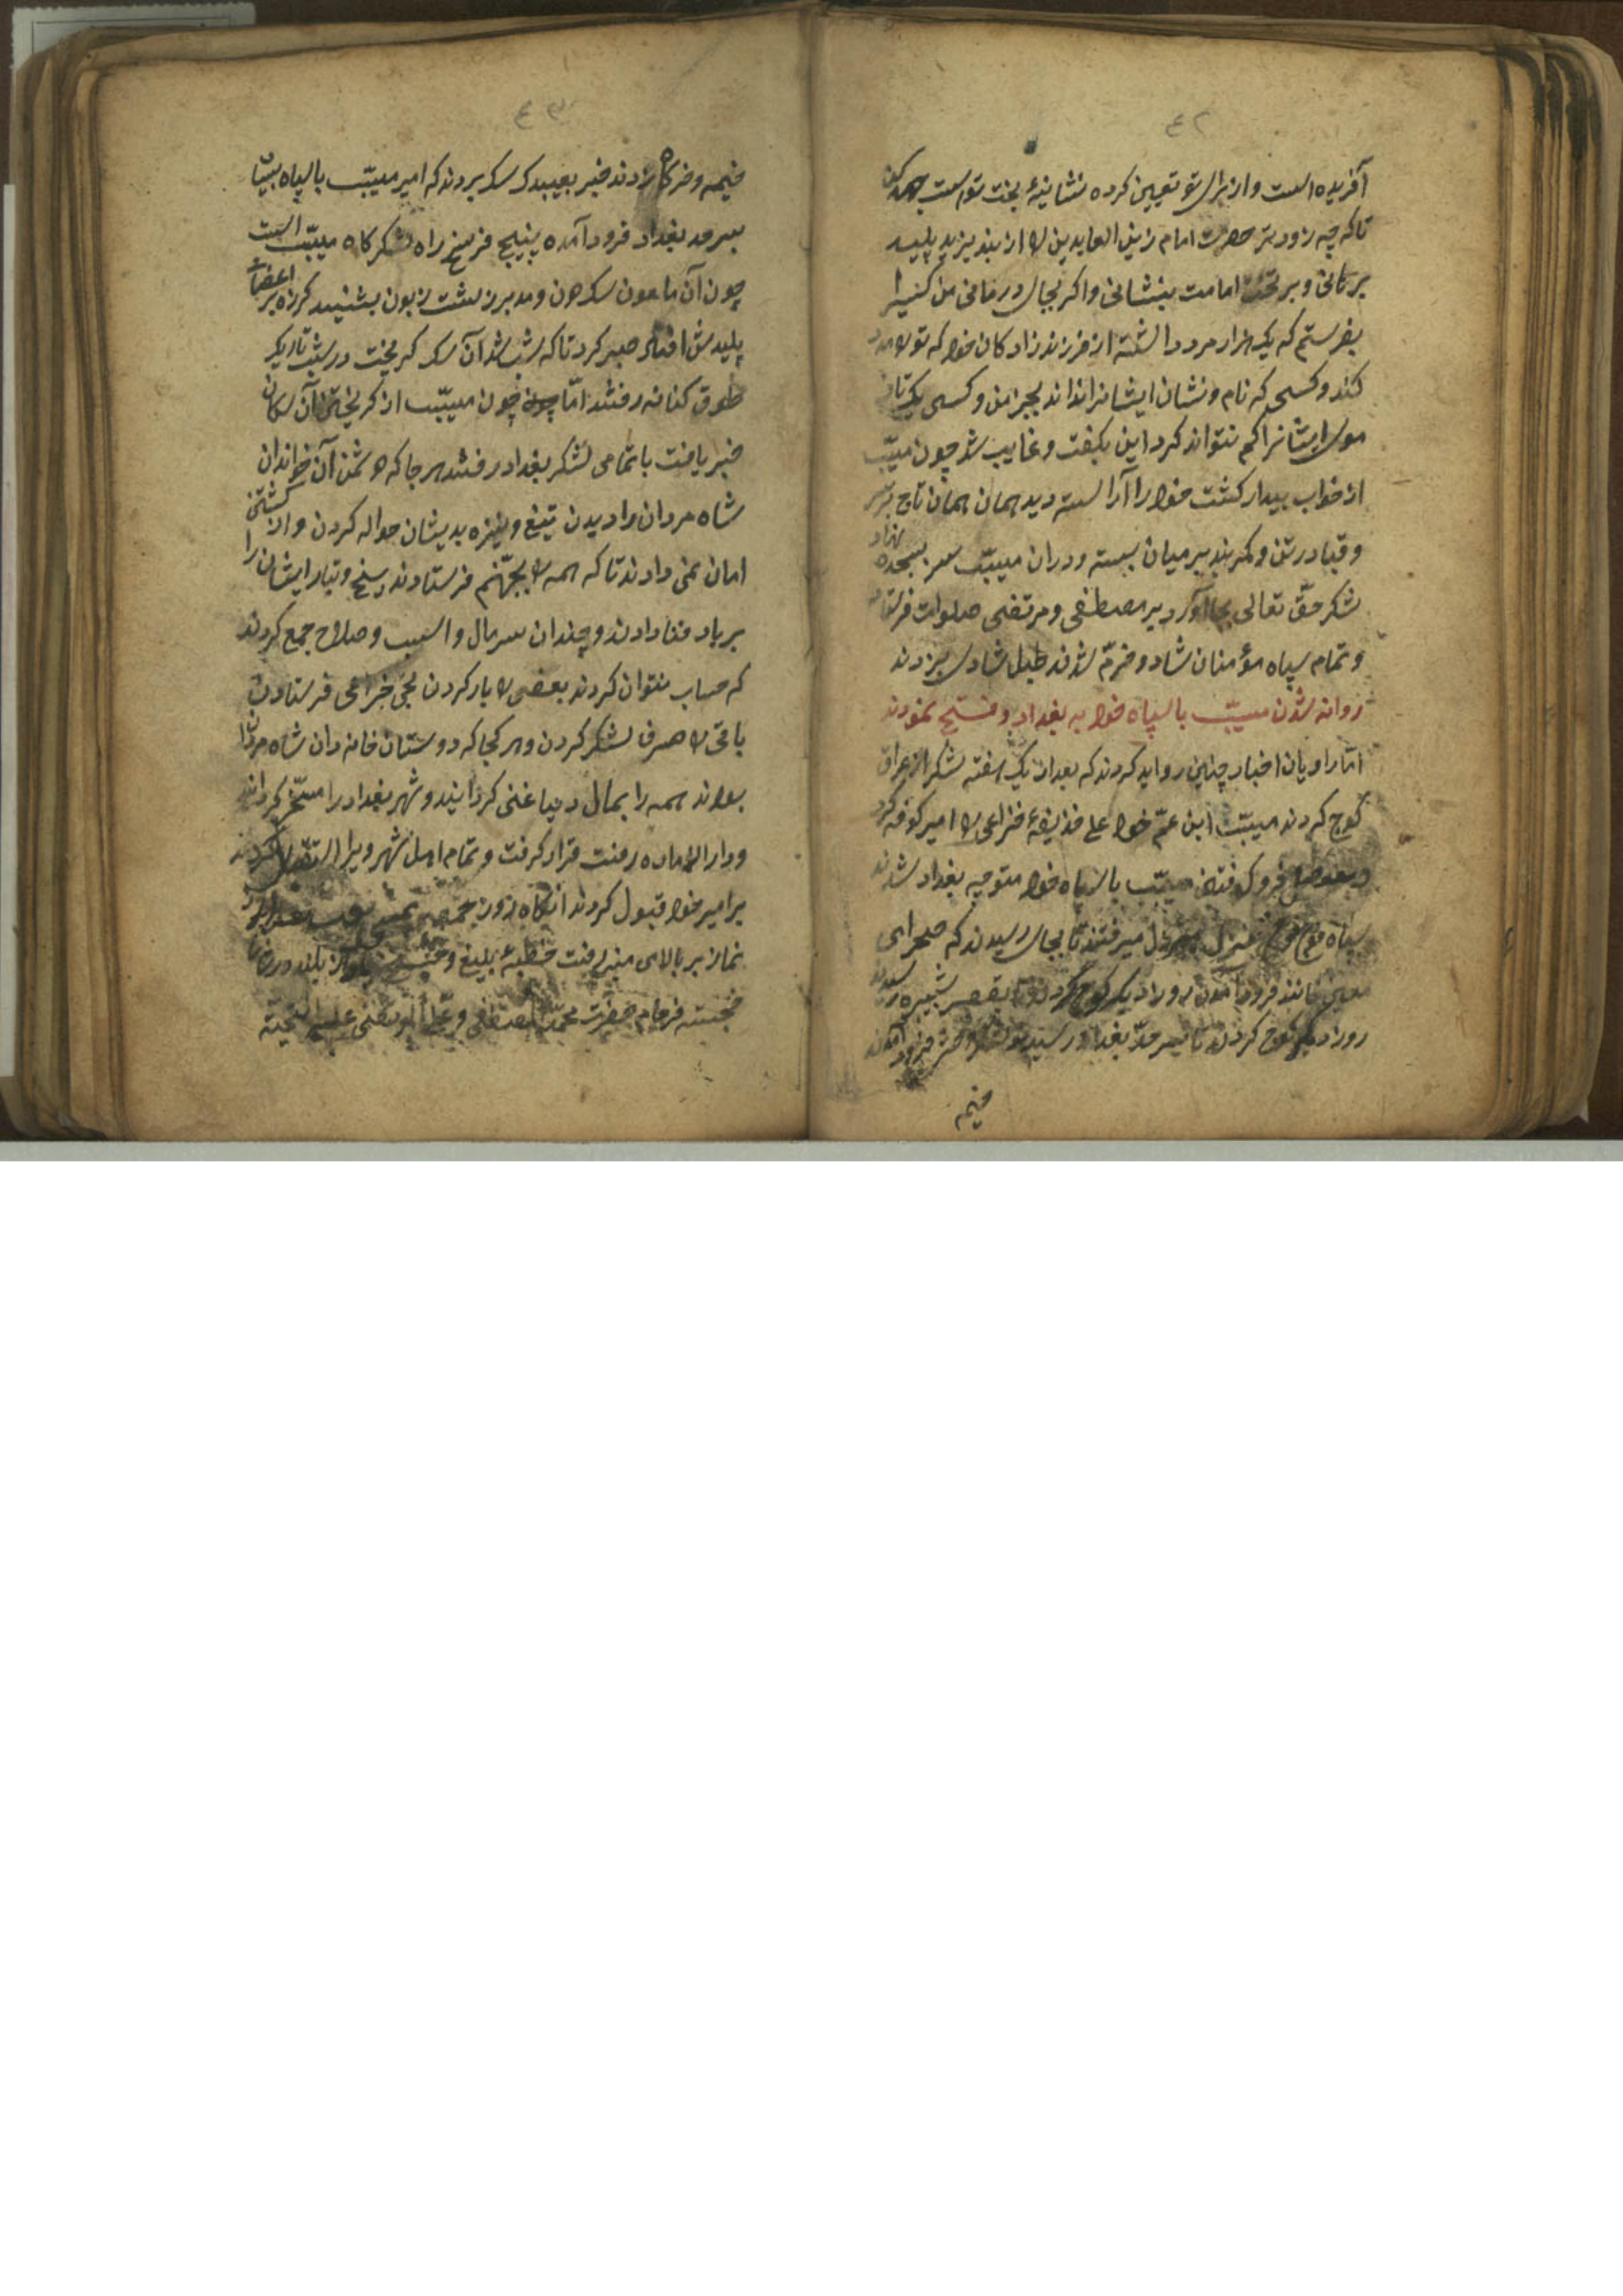 ٤٢
آفریده است و از برای تو تعیین کرده نشانیدهٔ بخت تو است جهد کن
تا که چه زودتر حضرت امام زین العابدین را از بند یزید پلید
برهانی و بر تخت امامت بنشانی و اگر بجای درمانی من کنیرا
بفرستم که یک هزار مرد داشته از فرزند زادکان خود که تو را مدد
کند و کسی که نام و نشان ایشانرا نداند بجز من و کسی یک تای
موی ایشانرا کم نتواند کرد این بگفت و غایب شد چون مسیّب
از خواب بیدار کشت خود را آراسته دید همان همان تاج بر سر
و قبا در تن و کمربند بر میان بسته در آن مسیّب سر بسجده نهاد
شکر حقّ تعالی بجا آورد بر مصطفی و مرتضی صلوات فرستاد
و تمام سپاه مؤمنان شاد و خرّم شدند طبل شادی بزدند
روانه شدن مسیّب با سپاه خود به بغداد و فتح نمودند
امّا راویان اخبار چنین روایه کردند که بعد از یک هفته لشکر از عراق
کوچ کردند مسیّب ابن عمّ خود علی خذیفهٔ خزاعی را امیر کوفه کرد
مسیّب با سپاه خود متوجه بغداد شدند
سپاه فوج فوج منزل میرفتند تا بجای رسیدند که صحرای
فرود آمدن روز دیگر کوچ کردند تا بقصر شبیره رسیدند
روز دیگر کوچ کردند تا بسر حدّ بغداد رسیدند فرود آمدند
خیمه
٤٣
خیمه و خرگاه زدند خبر بعبید ک سک بردند که امیر مسیّب با سپاه بسیار
بسرحد بغداد فرود آمده پنیج فرسخ راه لشکرگاه مسیّب است
چون آن ملعون سک دون و مدبر زشت زبون بشنید لرزه بر اعضای
پلیدش افتاد صبر کرد تا که شب شد آن سک کریخت در شب تاریک
طوق کنانه رفتند امّا چون مسیّب از کریختن آن سکان
خبر یافت با تمامی لشکر بغداد رفتند هر جا که دشمن آن خواندان
شاه مردان را دیدن تیغ و نیزه بدیشان حواله کردن و از کشتن
امان نمی دادند تا که همه را بجهّنم فرستادند بیخ و تبار ایشان را
بر باد فنا دادند و چندان سر مال و اسب و صلاح جمع کردند
که حساب نتوان کردند بعضی را بار کردن بجی خزاعی فرستادن
باقی را صرف لشکر کردن و هر کجا که دوستان خانه دان شاه مردان
بودند همه را بمال دنیا غنی کردانیند و شهر بغداد را مسخّر کردانند
و دار الاماده رفت قرار کرفت و تمام اهل شهر ویرا استقبال کردند
بر امیر خود قبول کردند انکاه روز جمعه
نماز بر بالای منبر رفت خطبهٔ بلیغ و باواز بلند
خجسته فرجام حضرت محمّد المصطفی و علی المرتضی علیه التحیّة